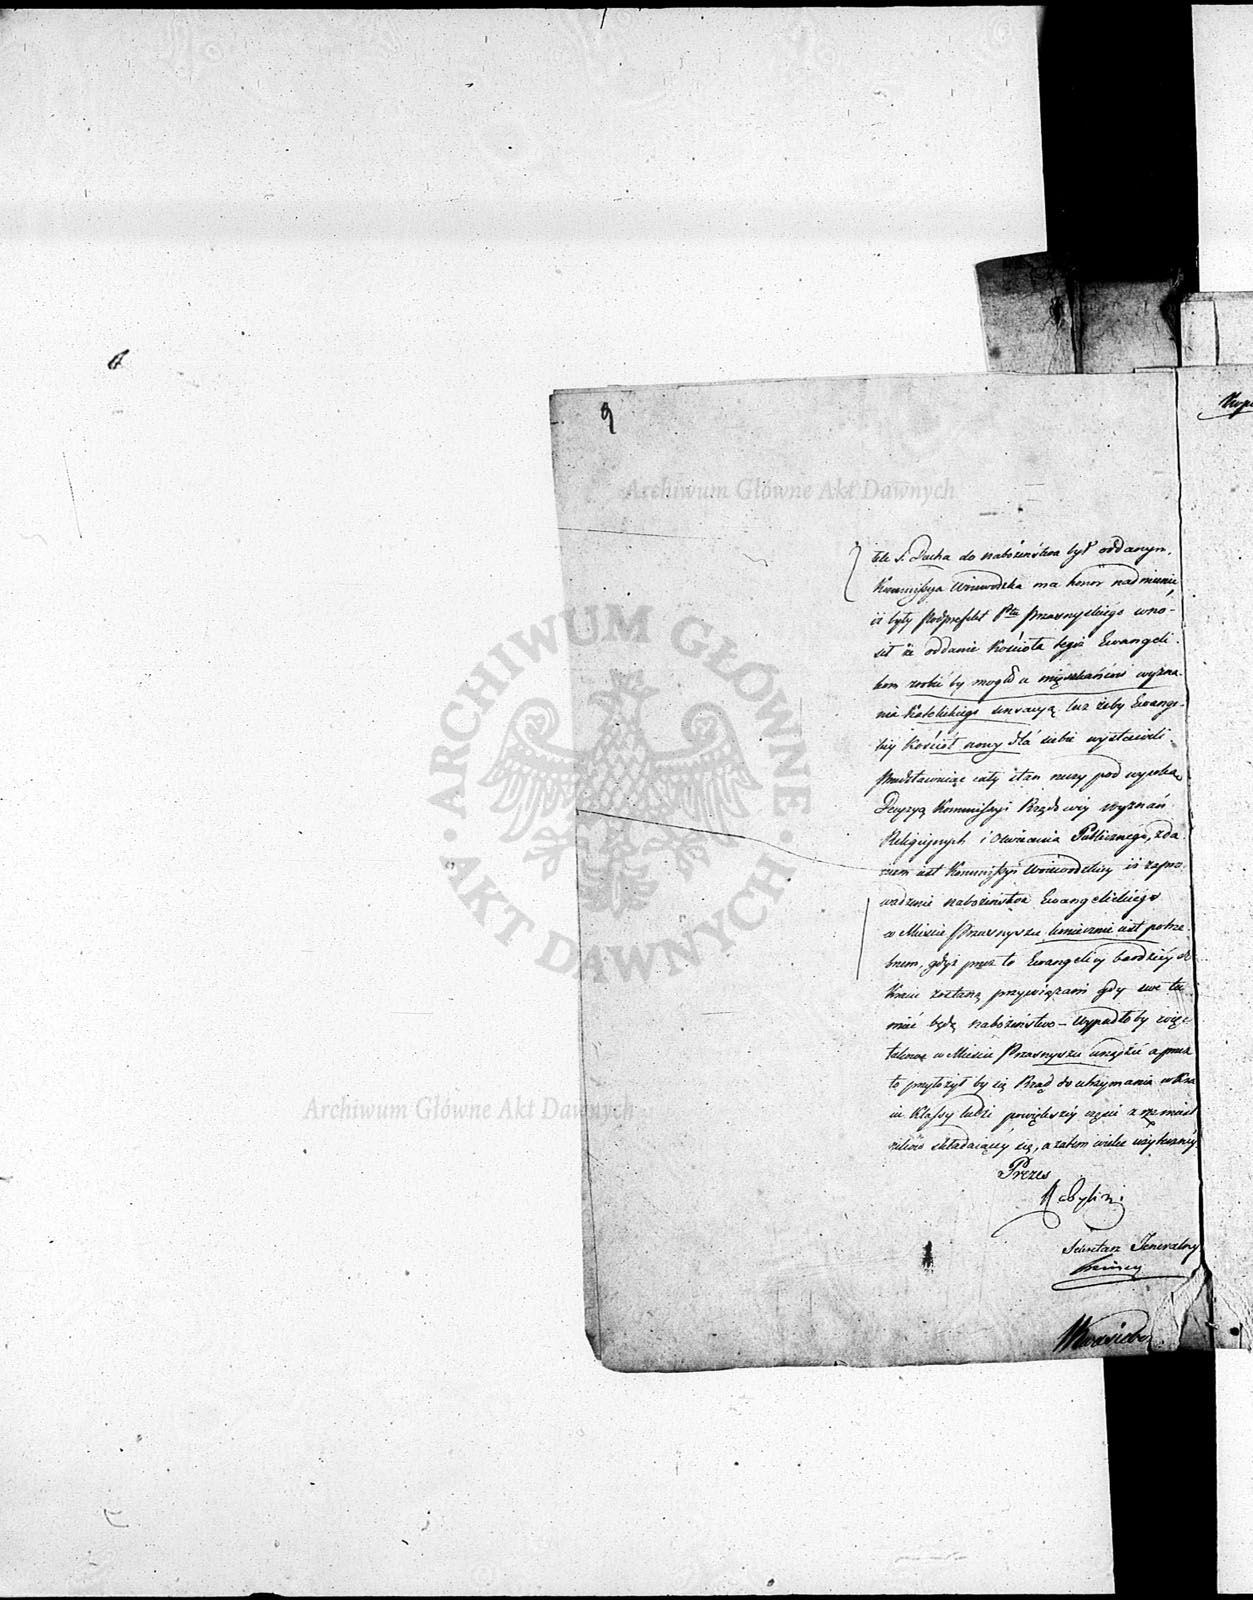 9
Archiwum Główne Akt Dawnych
łek S. Ducha do nabożeństwa był oddanym.
Kommissya Woiewodzka ma honor nadmienić
iż były Podprefekt Pttu Przasnyskiego wno-
sił że oddanie Kościoła tegoż Ewangeli-
kom zrobić by mogło u mieszkańców wyzna-
nia Katolickiego sensacyą lecz żeby Ewange-
licy Kościół nowy dla siebie wystawili
Przedstawiaiąc cały stan rzeczy pod wysoką
Decyzyą Kommissyi Rządowey Wyznań
Religiynych i Oświecenia Publicznego, zda-
niem iest Kommissyi Woiewodzkiey iż zapro-
wadzenie nabożeństwa Ewangelickiego
w Mieście Przasnyszu koniecznie iest potrze-
bnem, gdyż przez to Ewangelicy bardziey do
Kraiu zostaną przywiązani gdy swe tu
mieć będą nabożeństwo – Wypadłoby więc
takowe w Mieście Przasnyszu urządzić a przez
to przyłożył by się Rząd do utrzymania w Kra
iu Klassy ludzi powiększey części z rzemieśl
ników składaiącéy się, a zatem wielce użytecznéy.
Prezes
Sekretarz Jeneralny
ARCHIWUM GŁÓWNE
AKT DAWNYCH
Archiwum Główne Akt Dawnych